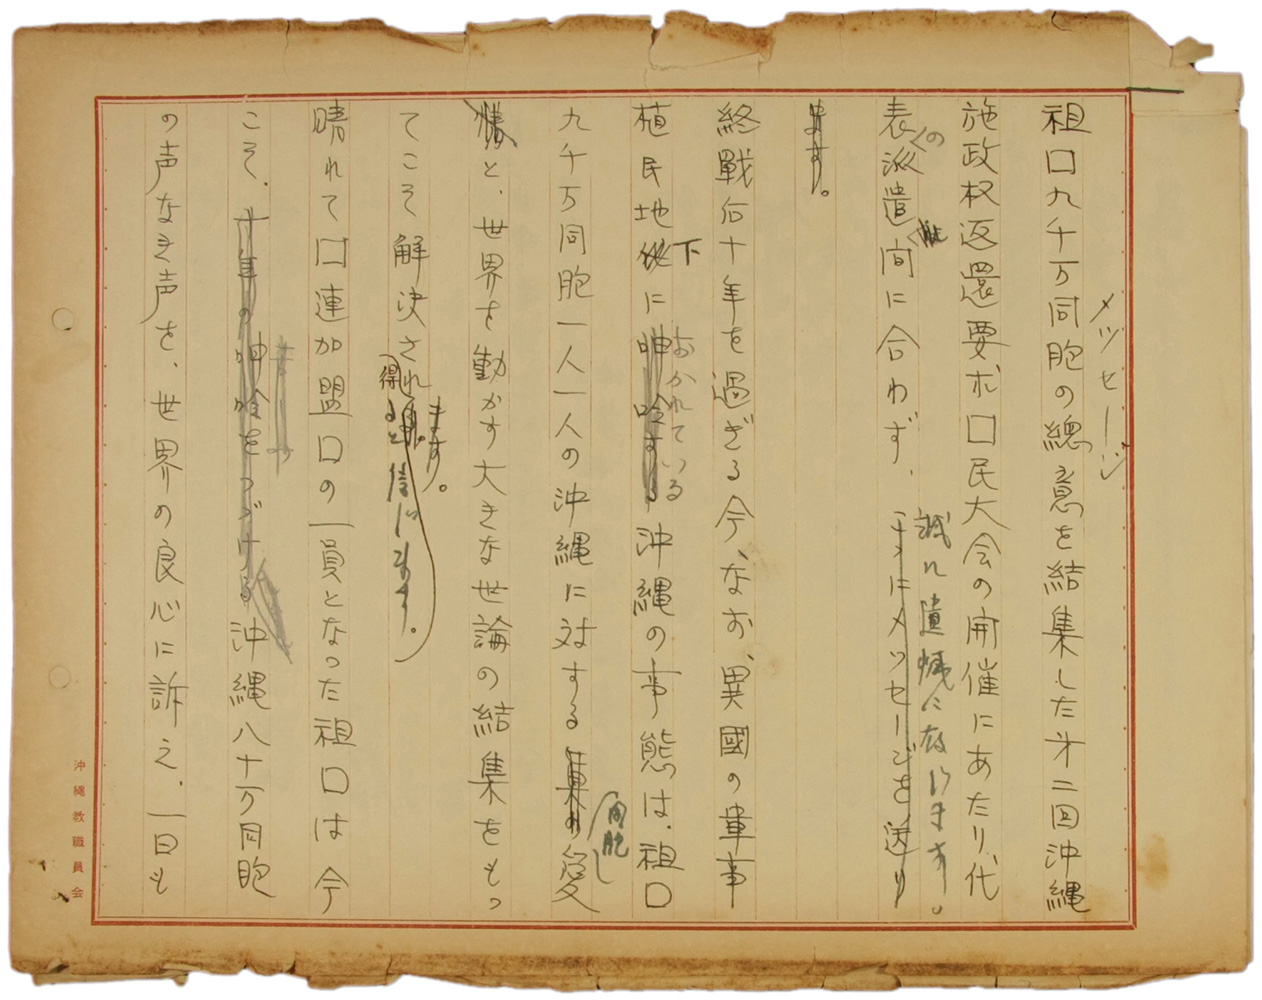 メッセージ
祖口九千万同胞の總意を結集した才二回沖縄
施政权返還要求口民大会の開催にあたり代
表の派遣間に合わず、誠に遺憾に存じます。
こゝにメッセージを送り
ます。
終戦后十年を過ぎる今、なお、異國の軍事
植民地化下に呻吟するおかれている沖縄の事態は、祖口
九千万同胞一人一人の沖縄に対する同胞愛
と、世界を動かす大きな世論の結集をもっ
てこそ解決されます。
得ると信じます。
晴れて口連加盟口の一員となった祖口は今
こそ、十年の呻吟をつづける沖縄八十万同胞
の声なき声を、世界の良心に訴え、一日も
沖縄教職員会